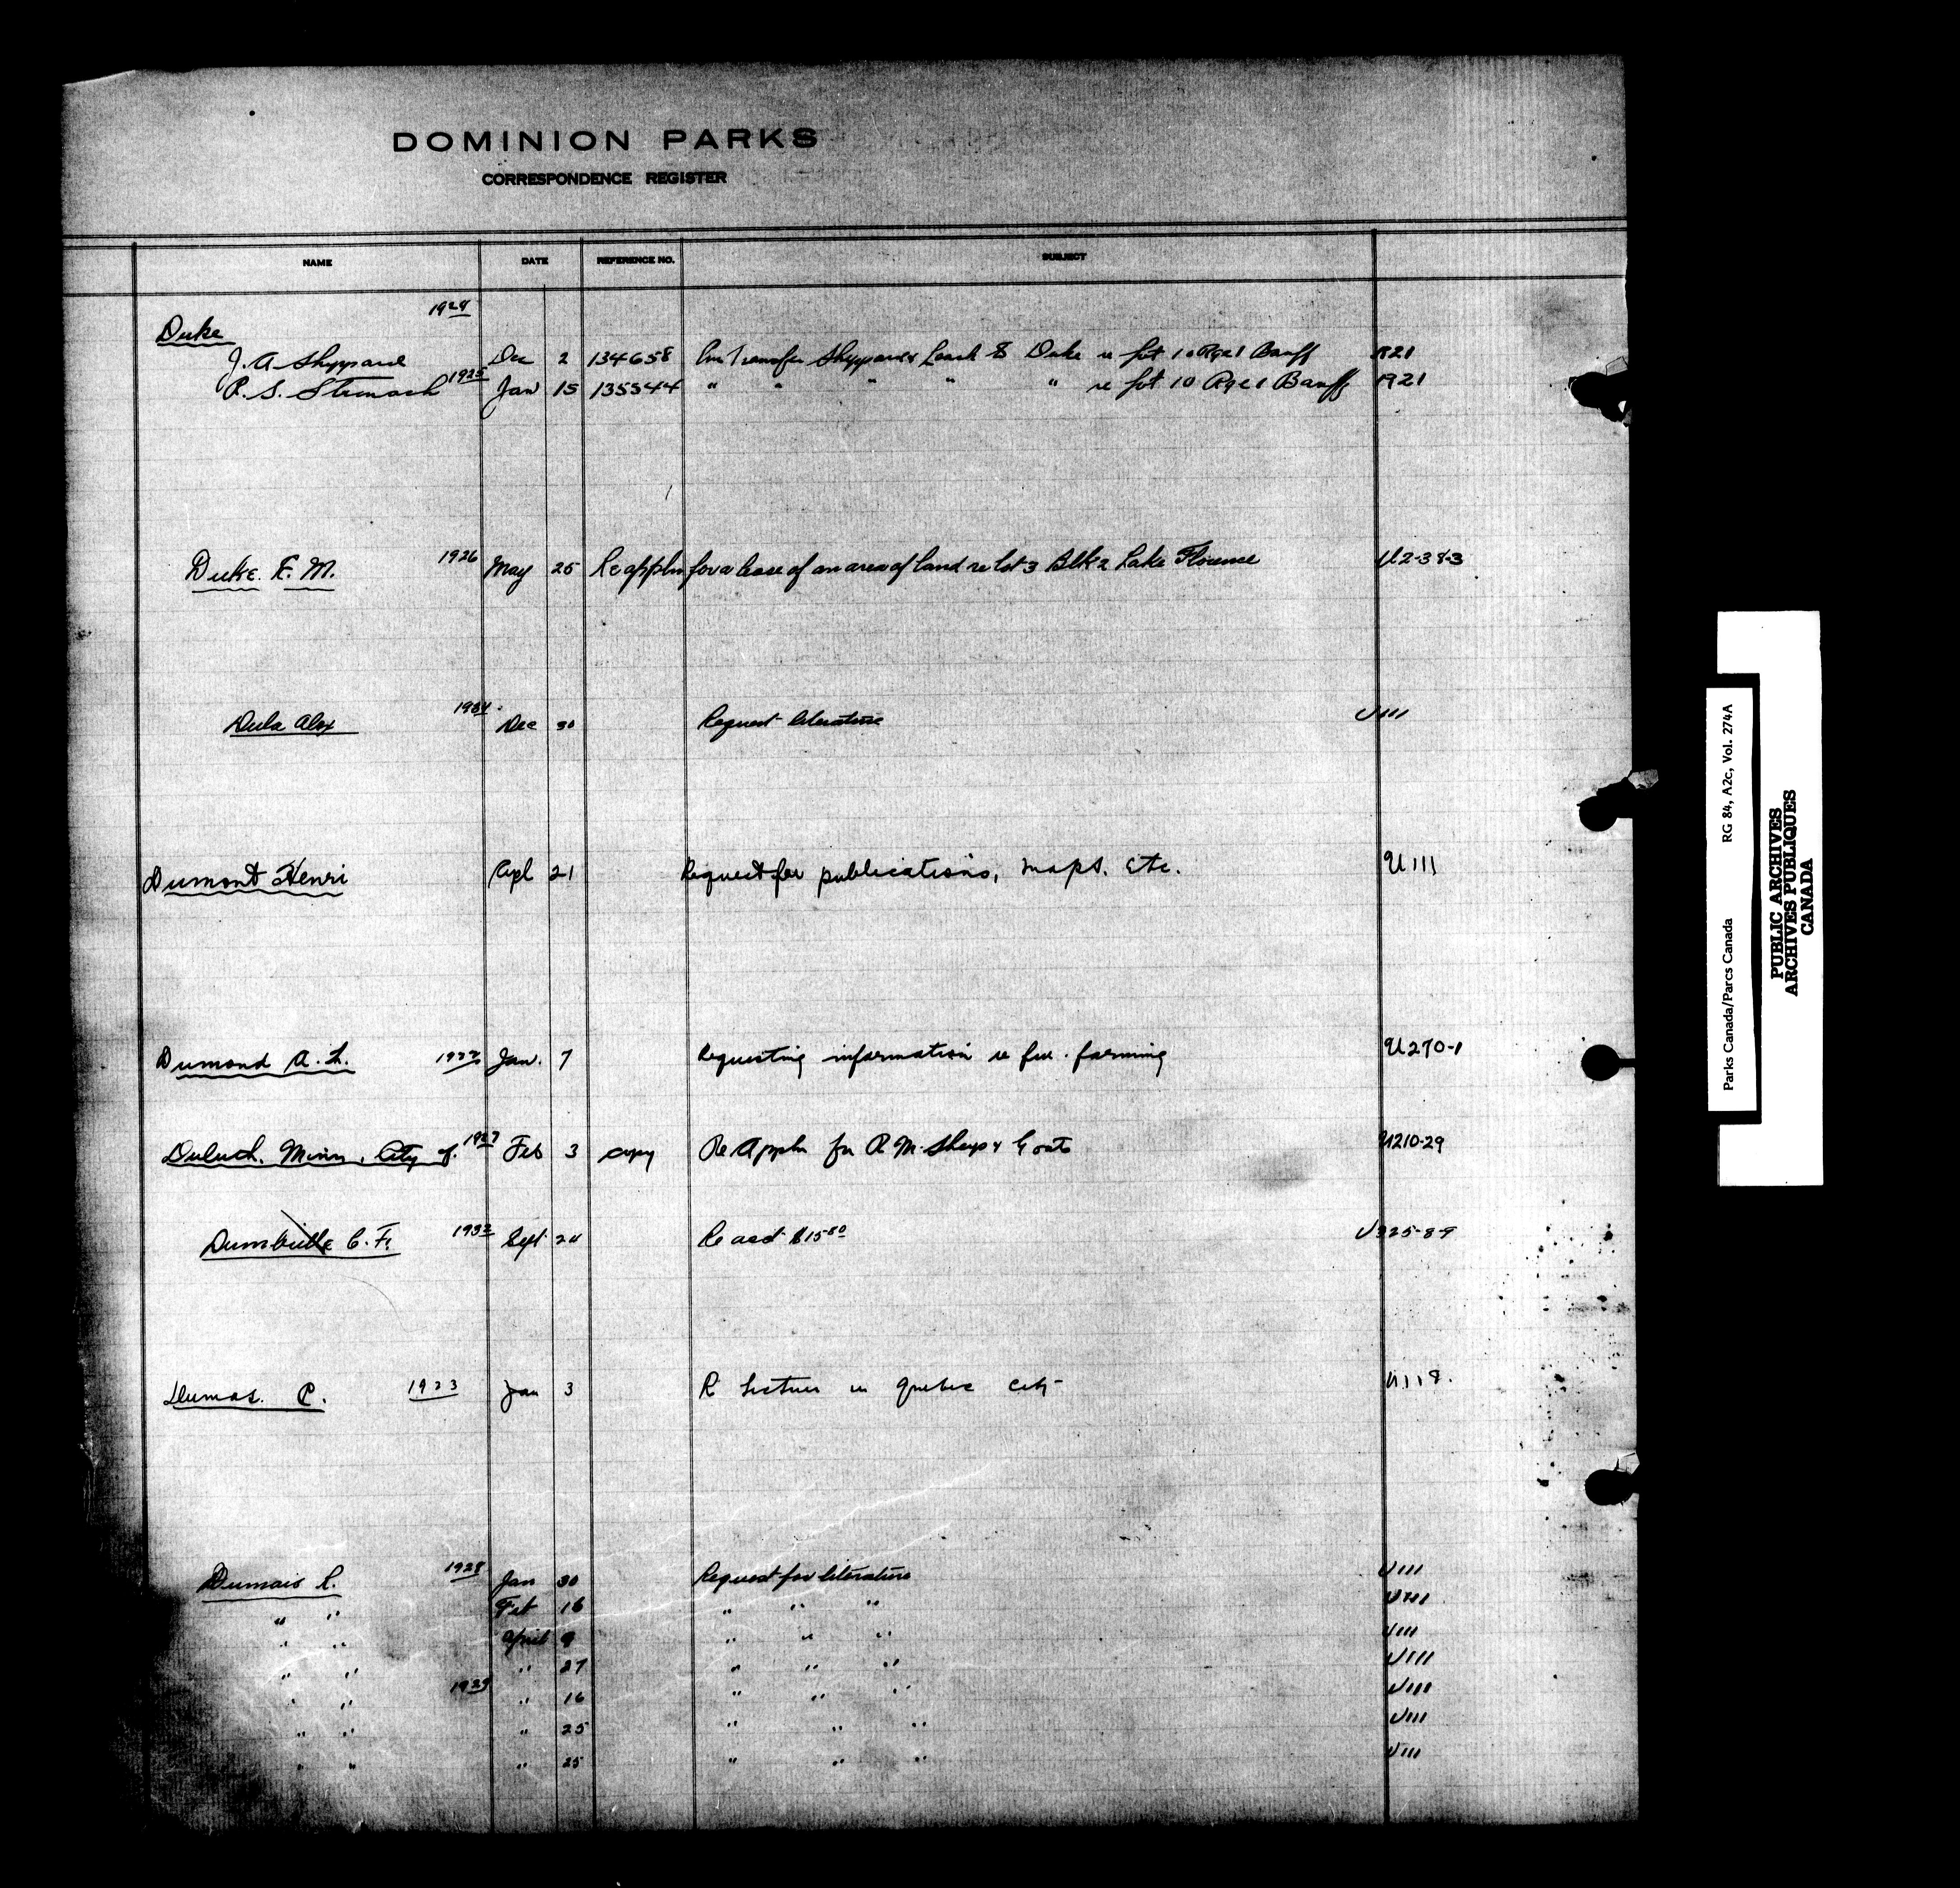 DOMINION PARKS
CORRESPONDENCE REGISTER
NAME DATE REFERENCE NO. SUBJECT
1924
Duke
J. A. Sheppard Dec 2 134658 Transfer to Duke re Lot 10 Rge 1 Banff 1921
1925 Jan 15 135544 " " " " " re Lot 10 Rge 1 Banff 1921
Duke F. M. 1926 May 25 Re appln for a lease of an area of land re lot 3 Blk 2 Lake Florence U2-38-3
Dula Alex 1934 Dec 30 Request literature U111
Dumont Henri Apl 21 Request for publications, maps. Etc. U111
Dumond A. L. Jan. 7 Requesting information re fur. farming U270-1
Duluth. Minn, City of. 1927 Feb 3 copy Re Appln for R M. Sheep & Goats U210-29
C. F. 1932 Sept 24 Re acct $15.80 U325-89
Dumas. P. 1923 Jan 3 Re Lecture in Quebec City U118.
Dumais R. 1928 Jan 30 Request for literature U111
" " Feb 16 " " " U111
" " April 9 " " " U111
" " " 27 " " " U111
" " " 16 " " " U111
" " " 25 " " " U111
" " " 25 " " " U111
Parks Canada/Parcs Canada RG 84, A2c, Vol. 274A
PUBLIC ARCHIVES
ARCHIVES PUBLIQUES
CANADA